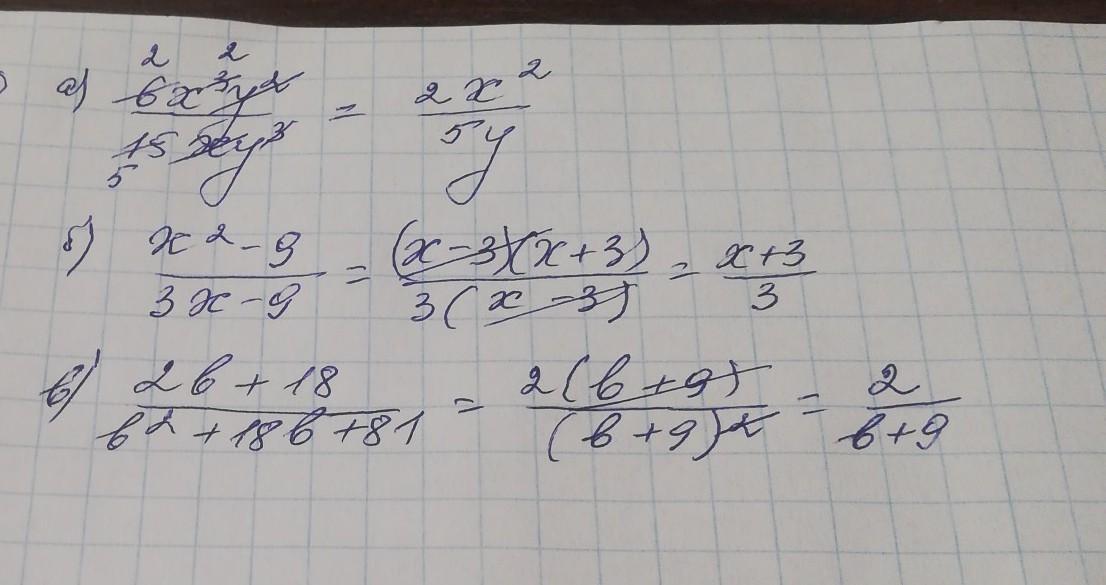 а) 6x³y² / 15xy³ = 2x² / 5y
б) x² - 9 / 3x - 9 = (x - 3)(x + 3) / 3(x - 3) = x + 3 / 3
в) 2b + 18 / b² + 18b + 81 = 2(b + 9) / (b + 9)² = 2 / b + 9